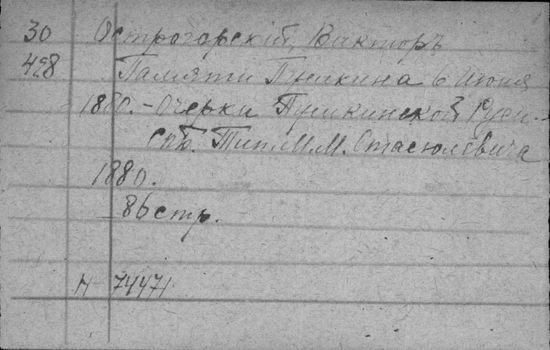 30 Острогорскій, Викторъ
428 Памяти Пушкина 6 Июня
1880.-Очерки Пушкинской Руси.-
Спб. Тип. М.М. Стасюлевича
1880.
86 стр.
Н 74471